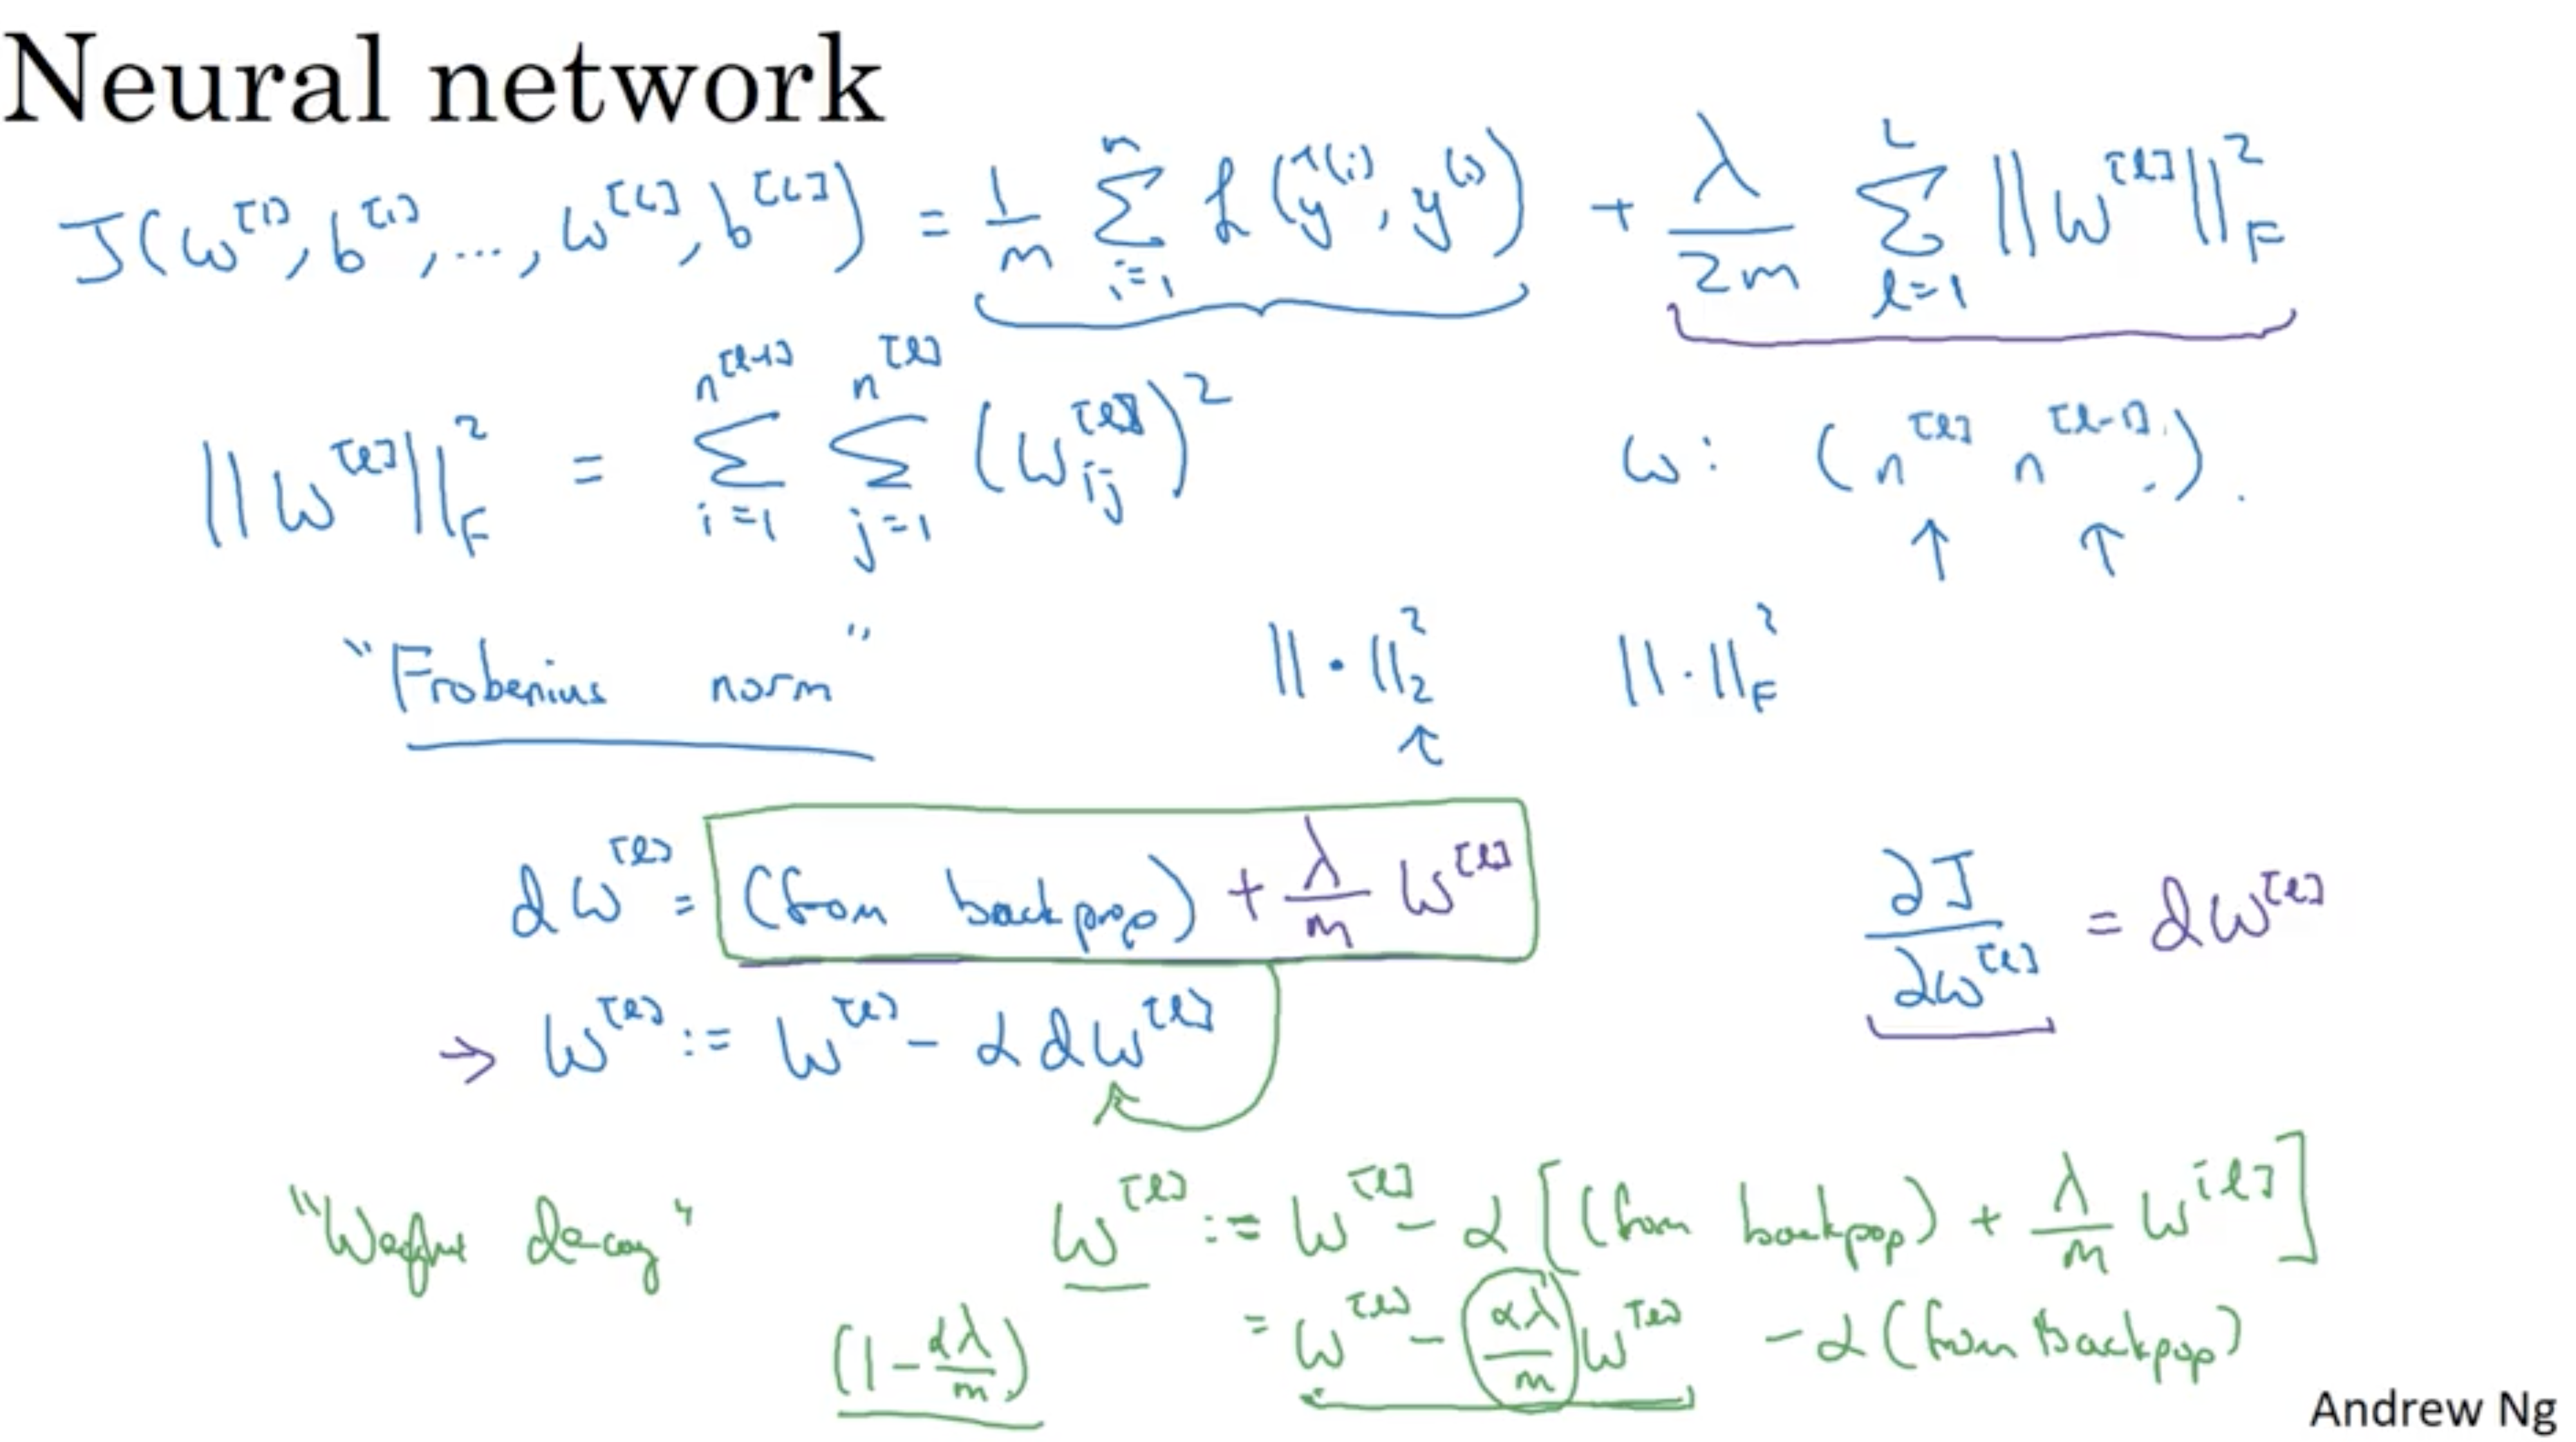 Neural network
J(w^[1], b^[1], ..., w^[L], b^[L]) = 1/m Σ_{i=1}^{m} ℒ(ŷ^(i), y^(i)) + λ/2m Σ_{l=1}^{L} ||w^[l]||_F^2
||w^[l]||_F^2 = Σ_{i=1}^{n^[l-1]} Σ_{j=1}^{n^[l]} (w_ij^[l])^2 w: (n^[l] n^[l-1]).
↑ ↑
"Frobenius norm" ||·||_2^2 ||·||_F^2
↑
dw^[l] = (from backprop) + λ/m w^[l] ∂J/∂w^[l] = dw^[l]
→ w^[l] := w^[l] - α dw^[l]
"Weight decay" w^[l] := w^[l] - α [(from backpop) + λ/m w^[l]]
(1 - αλ/m) = w^[l] - αλ/m w^[l] - α (from Backpop)
Andrew Ng